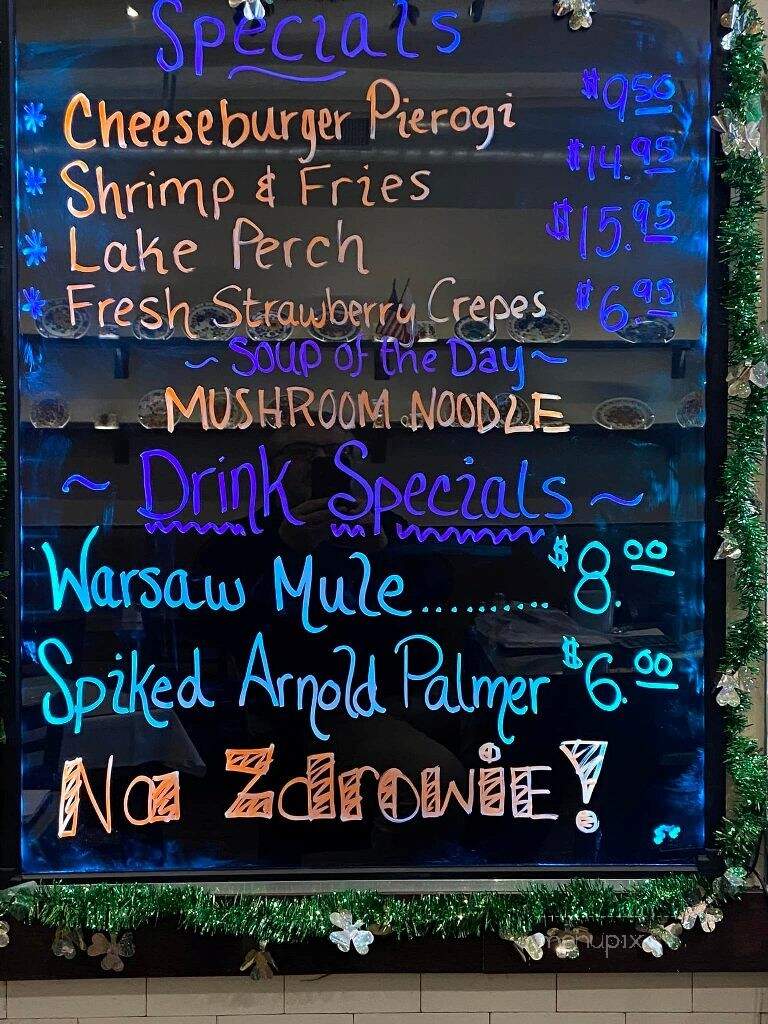 Specials
* Cheeseburger Pierogi $9.50
* Shrimp & Fries $14.95
* Lake Perch $15.95
* Fresh Strawberry Crepes $6.95
~ Soup of the Day ~
MUSHROOM NOODLE
~ Drink Specials ~
Warsaw Mule.......... $8.00
Spiked Arnold Palmer $6.00
Na Zdrowie!